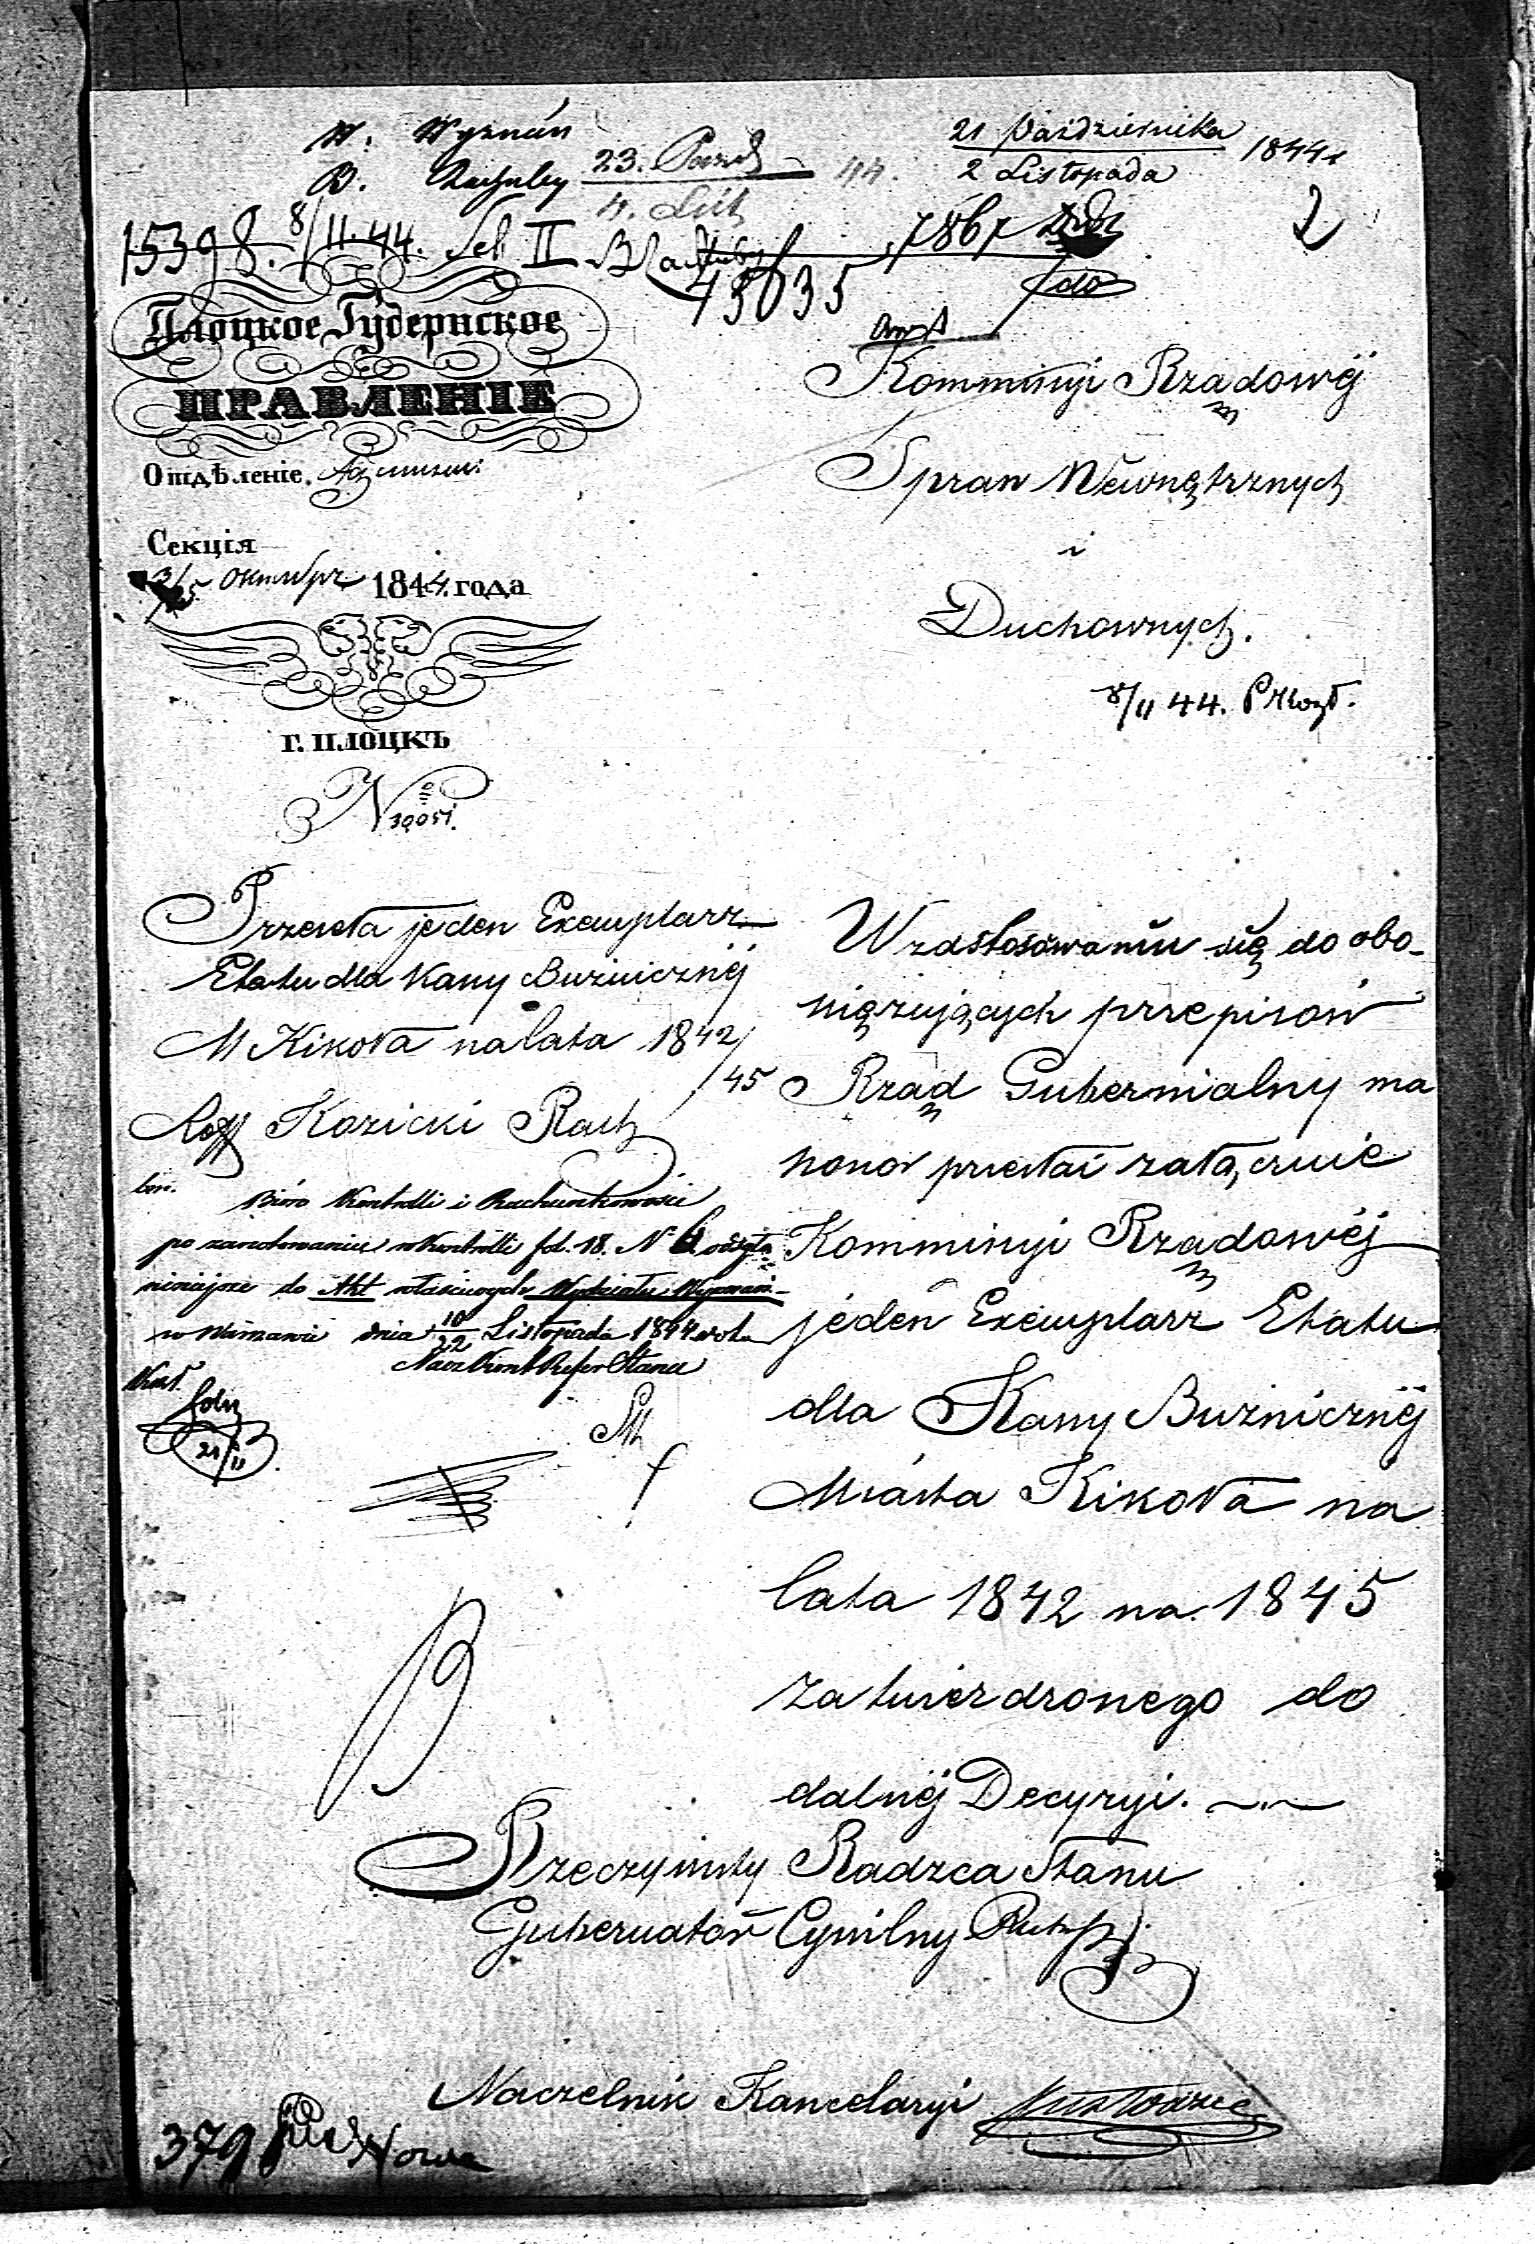 W. Wyznań
B. Rachuby
23. Paźd 44.
4. List
21 Października 1844 r
2 Listopada
2
15398. 8/11. 44. Sek II
7867
45035
Плоцкое Губернское
ПРАВЛЕНІЕ
Отдѣленіе.
Секція
Октября 1844. года
Г. ПЛОЦКЪ
No 39051.
Kommissyi Rządowéj
Spraw Wewnętrznych
i
Duchownych.
8/11 44.
Przesyła jeden Exemplarz
Etatu dla Kassy Bużnicznéj
M Kikoła na lata 1842/45
Kozicki Rach
Bióro Kontrolli i Rachunkowości
po zanotowaniu w Kontrolli fol. 18. N 6 odsyła
niniejsze do Akt właściwych Wydziału Wyznań
w Warszawie dnia 10/22 Listopada 1844 roku
Nacz Kont Refer Stanu
21/11
W zastosowaniu się do obo-
więzujących przepisów
Rząd Gubernialny ma
honor przesłać załącznie
Kommissyi Rządowéj
jeden Exemplarz Etatu
dla Kassy Bużniczнéj
Miasta Kikoła na
lata 1842 na 1845
zatwierdzonego do
dalszéj Decyzyi.
Rzeczywisty Radzca Stanu
Gubernator Cywilny
Naczelnik Kancelaryi
379
Nowa